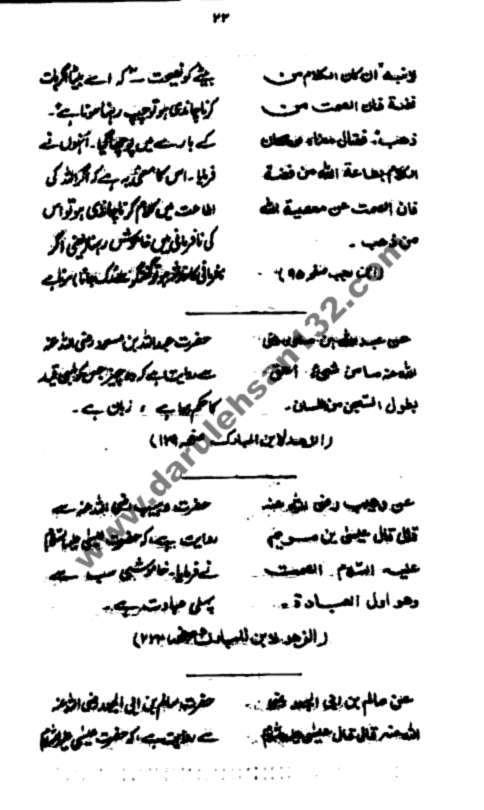 ۲۲
لابنه ان كان الكلام من
فضة فان الصمت من
ذهب. فقال معناه من كان
الكلام بطاعة الله من فضة
فان الصمت عن معصية الله
من ذهب۔
بیٹے کو نصیحت کہ اے بیٹا اگر بات
کرنا چاندی ہو تو چپ رہنا سونا ہے۔
کے بارے میں پوچھا گیا۔ انہوں نے
فرمایا۔ اس کا معنی یہ ہے کہ اگر اللہ کی
اطاعت میں کلام کرنا چاندی ہو تو اس
کی نافرمانی میں خاموش رہنا یعنی اگر
سونا ہے
صفحہ ۹۵)
عن عبد الله بن
الله عنه ما من شيئ احق
بطول السجن من اللسان۔
حضرت عبداللہ بن مسعود رضی اللہ عنہ
سے روایت ہے کہ وہ چیز جس کو لمبی قید
کا حکم ہے، زبان ہے۔
(الزهد لابن المبارک صفحہ ۱۲۹)
عن وهيب رضى الله عنه
قال قال عيسى بن مريم
عليه السلام الصمت
وهو اول العبادة۔
حضرت وہیب رضی اللہ عنہ سے
روایت ہے، کہ حضرت عیسیٰ علیہ السلام
نے فرمایا۔ خاموشی سب سے
پہلی عبادت ہے۔
(الزهد لابن المبارک صفحہ ۲۲۳)
عن سالم بن ابى الجعد رضى
الله عنه قال قال عيسى عليه السلام
حضرت سالم بن ابی الجعد رضی اللہ عنہ
سے روایت ہے، کہ حضرت عیسیٰ علیہ السلام
www.darulehsan132.com